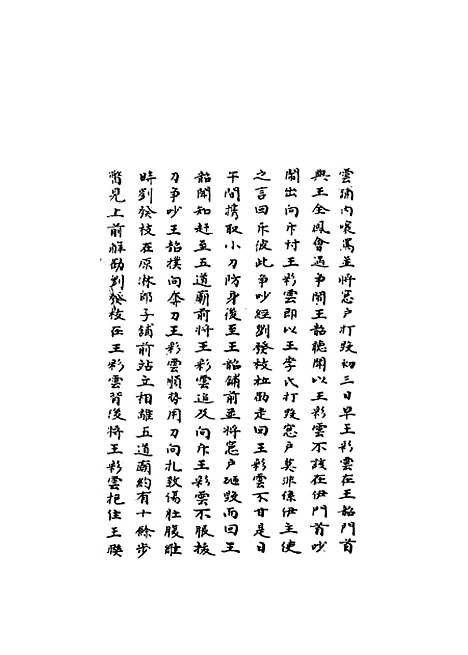 雲鋪內喊罵並將窓戶打毀初三日早王彩雲在王韶門首
與王全鳳會遇爭鬧王韶聽聞以王彩雲不該在伊門首吵
鬧出向斥付王彩雲即以王李氏打毀窓戶莫非係伊主使
之言回斥彼此爭吵經劉發枝拉勸走回王彩雲不甘是日
午間携取小刀防身後至王韶鋪前並將窓戶砸毀而回王
韶聞知赶至五道廟前將王彩雲追及向斥王彩雲不服拔
刀爭吵王韶撲向奪刀王彩雲順勢用刀向扎致傷肚腹維
時劉發枝在原淋郎子鋪前站立相離五道廟約有十餘步
瞥見上前解勸劉發枝在王彩雲背後將王彩雲抱住王睽